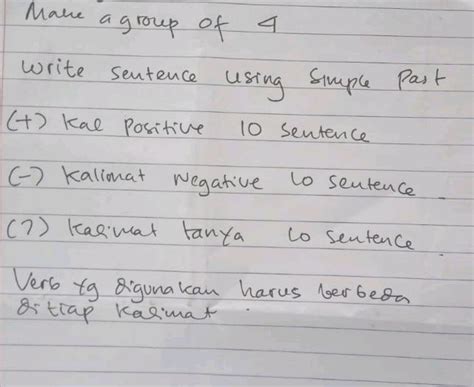 Make a group of 4
Write sentence using Simple Past
(+) Kal Positive 10 Sentence
(-) Kalimat Negative 10 Sentence
(?) Kalimat tanya 10 Sentence
Verb yg digunakan harus berbeda
di tiap Kalimat